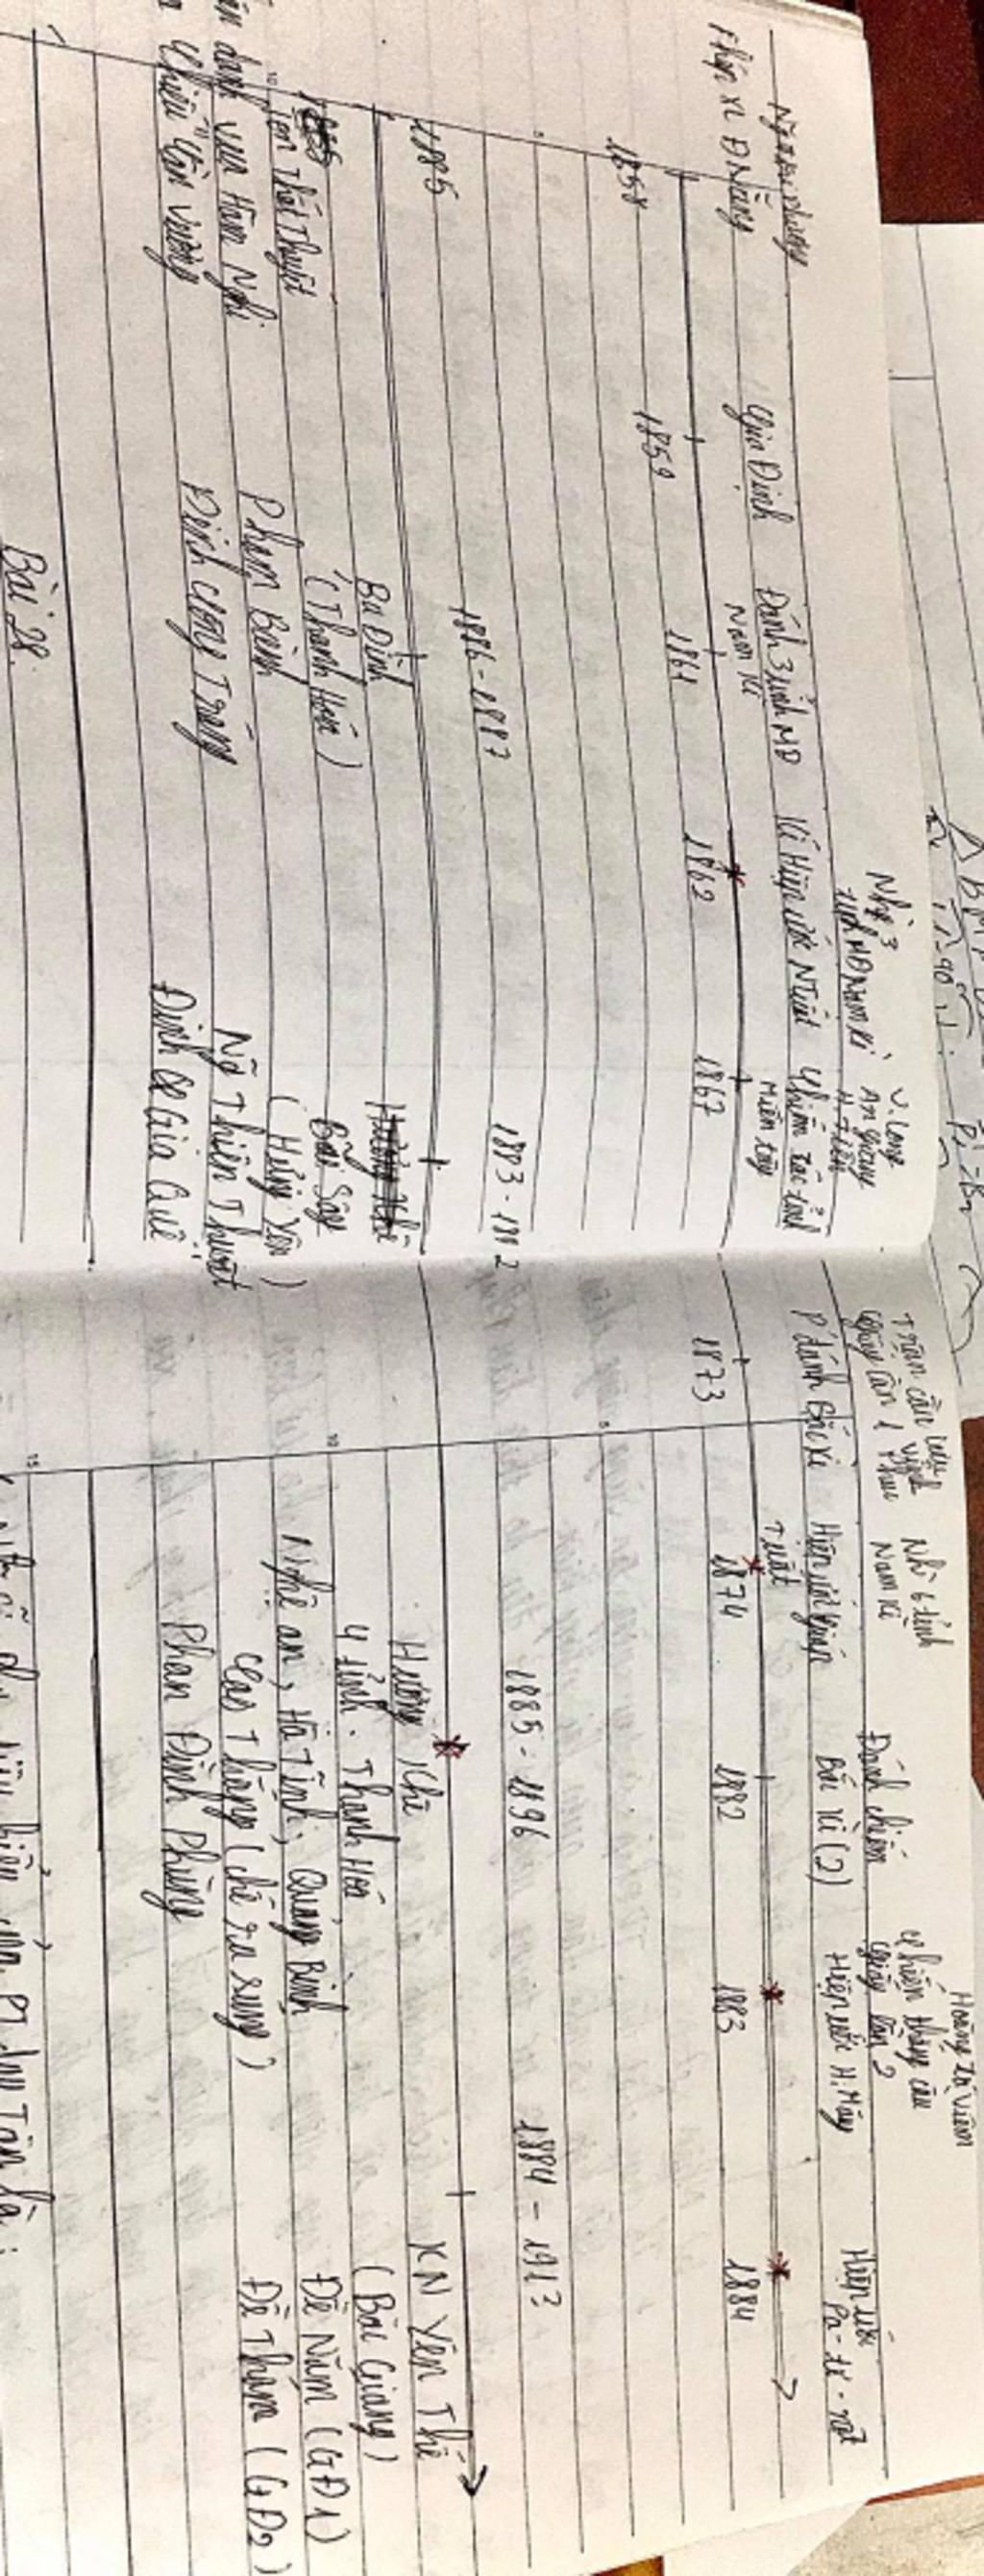 Pháp XL Đ Nẵng
1858
Gia Định
1859
Đánh 3 tỉnh MĐ
Nam Kì
1861
Nhg 3
tỉnh MĐ Nam Kì
Kí Hiệp ước NTuất
1862
V. Long
An Giang
H. Tiên
Chiếm các tỉnh
Miền tây
1867
Trận cầu
Giấy lần 1
P đánh Bắc Kì
1873
Nhg 6 tỉnh
Nam Kì
Hiệp ước Giáp
Tuất
1874
Đánh chiếm
Bắc Kì (2)
1882
Hoàng Tá Viêm
chiến thắng cầu
giấy lần 2
Hiệp ước H. Măng
1883
Hiệp ước
Pa-tơ-nốt
1884
1885
Tôn Thất Thuyết
danh vua Hàm Nghi
Chiếu "Cần Vương
1886 - 1887
Ba Đình
(Thanh Hoá)
Phạm Bành
Đinh Công Tráng
1883 - 1892
Bãi Sậy
(Hưng Yên)
Ng Thiện Thuật
Đinh Gia Quế
1885 - 1896
Hương Khê
4 tỉnh. Thanh Hoá
Nghệ an, Hà Tĩnh, Quảng Bình
Cao Thắng (chế ra súng)
Phan Đình Phùng
1884 - 1913
KN Yên Thế
(Bắc Giang)
Đề Nắm (GĐ1)
Đề Thám (GĐ2)
Bài 28.